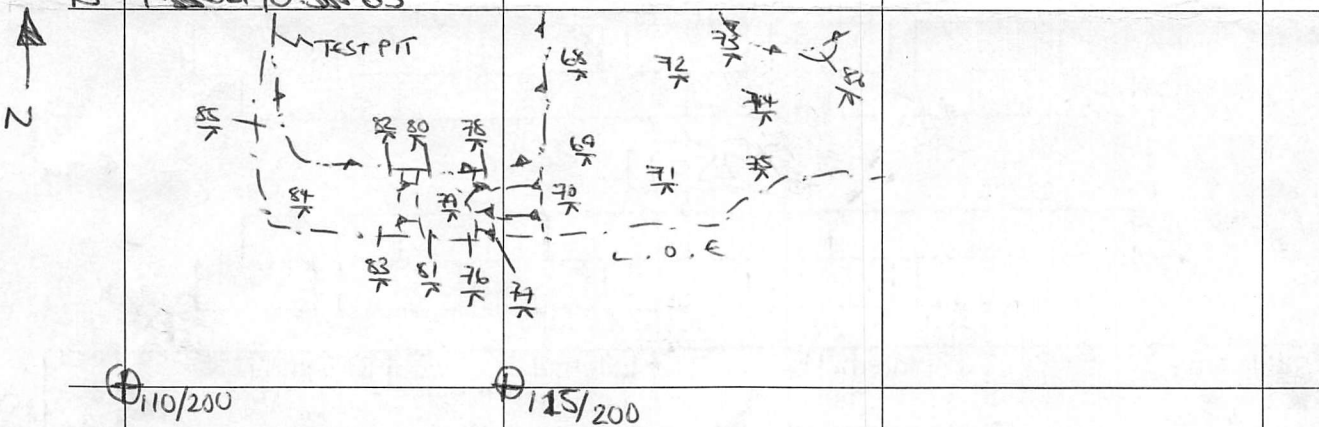 N
TEST PIT
68
72
73
86
85
82 80 78
69
74
75
71
84
79
70
L.O.E
83
81
76
77
110/200
115/200